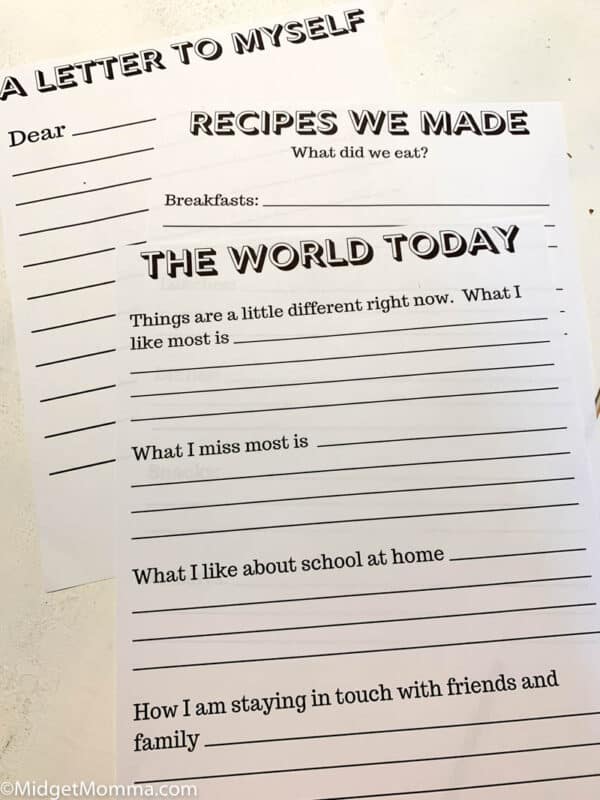 A LETTER TO MYSELF
Dear
RECIPES WE MADE
What did we eat?
Breakfasts:
THE WORLD TODAY
Things are a little different right now. What I
like most is
What I miss most is
What I like about school at home
How I am staying in touch with friends and
family
©MidgetMomma.com